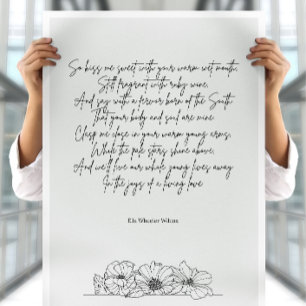 So kiss me sweet with your warm wet mouth,
Still fragrant with ruby wine,
And say with a fervor born of the South
That your body and soul are mine.
Clasp me close in your warm young arms,
While the pale stars shine above,
And we'll live our whole young lives away
In the joys of a living love
Ella Wheeler Wilcox